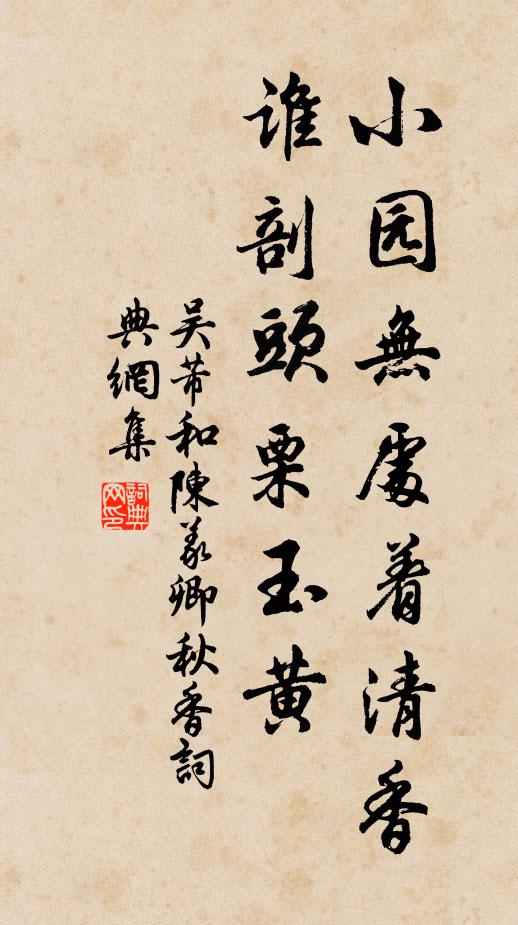 小园無處着清香
谁剖頭栗玉黄
吴芾和陳羲卿秋香詞
典網集
詞典
网印